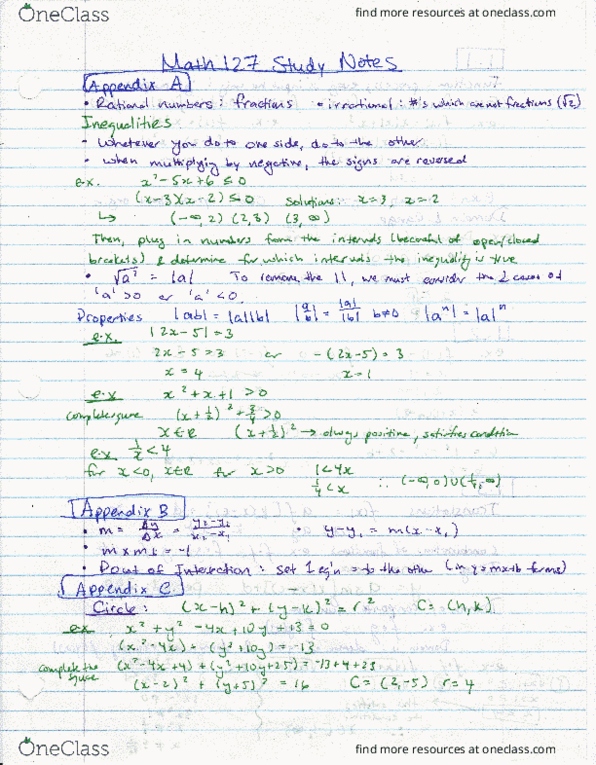 OneClass
find more resources at oneclass.com
Math 127 Study Notes
Appendix A
• Rational numbers : fractions • irrational : #'s which are not fractions (√2)
Inequalities
- Whatever you do to one side, do to the other
• when multiplying by negative, the signs are reversed
ex. x² - 5x + 6 ≤ 0
(x-3)(x-2) ≤ 0 solutions: x = 3, x = 2
↳ (-∞, 2) (2, 3) (3, ∞)
Then, plug in numbers from the intervals (becareful of open/closed
brackets) & determine for which intervals the inequality is true
• √a² = |a| To remove the ||, we must consider the 2 cases of
'a' > 0 or 'a' < 0.
Properties |ab| = |a||b| |a/b| = |a|/|b| b≠0 |aⁿ| = |a|ⁿ
e.x. |2x - 5| = 3
2x - 5 = 3 or -(2x-5) = 3
x = 4 x = 1
e.x x² + x + 1 > 0
complete square (x + ½)² + ¾ > 0
x ∈ R (x + ½)² → always positive, satisfies condition
ex 1/x < 4
for x < 0, x ∈ R for x > 0 1 < 4x
¼ < x ∴ (-∞, 0) ∪ (¼, ∞)
Appendix B
• m = Δy/Δx = y₂-y₁/x₂-x₁ • y - y₁ = m(x - x₁)
• m x m⊥ = -1
• Point of Intersection : set 1 eq'n = to the other (in y=mx+b forms)
Appendix C
Circle : (x-h)² + (y-k)² = r² C = (h, k)
ex. x² + y² - 4x + 10y + 13 = 0
(x² - 4x) + (y² + 10y) = -13
complete the square (x² - 4x + 4) + (y² + 10y + 25) = -13 + 4 + 25
(x - 2)² + (y + 5)² = 16 C = (2, -5) r = 4
OneClass
find more resources at oneclass.com